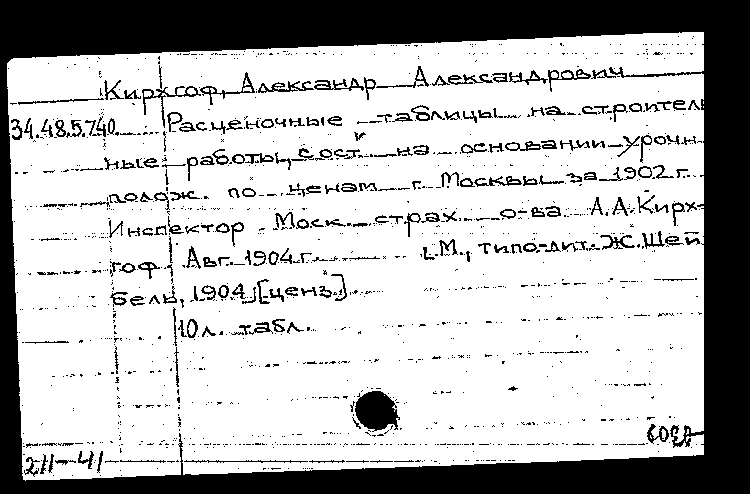 Кирхгоф, Александр Александрович
34.48.5.740 Расценочные таблицы на строитель
ные работы, сост. на основании урочн
полож. по ценам г. Москвы за 1902 г.
Инспектор Моск. страх. о-ва А.А. Кирх-
гоф. Авг. 1904 г. [М., типо-лит. Ж. Шей
бель, 1904] [ценз.]
10 л. табл.
211-41